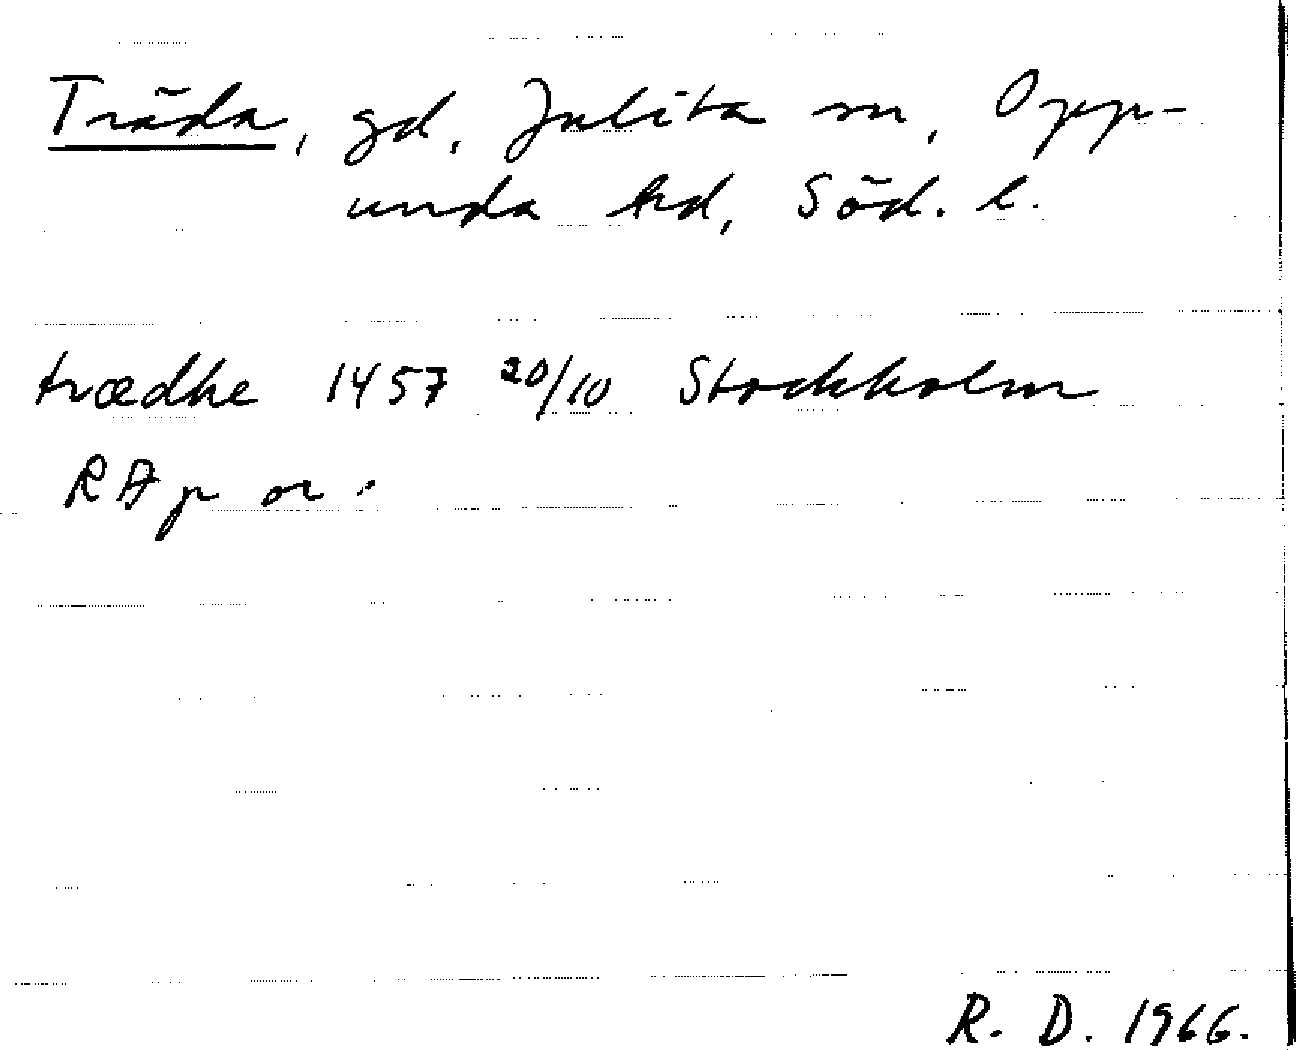 Träda, gd, Julita sn, Opp-
unda hd, Söd. l.
trædhe 1457 20/10 Stockholm
RA p or.
R. D. 1966.